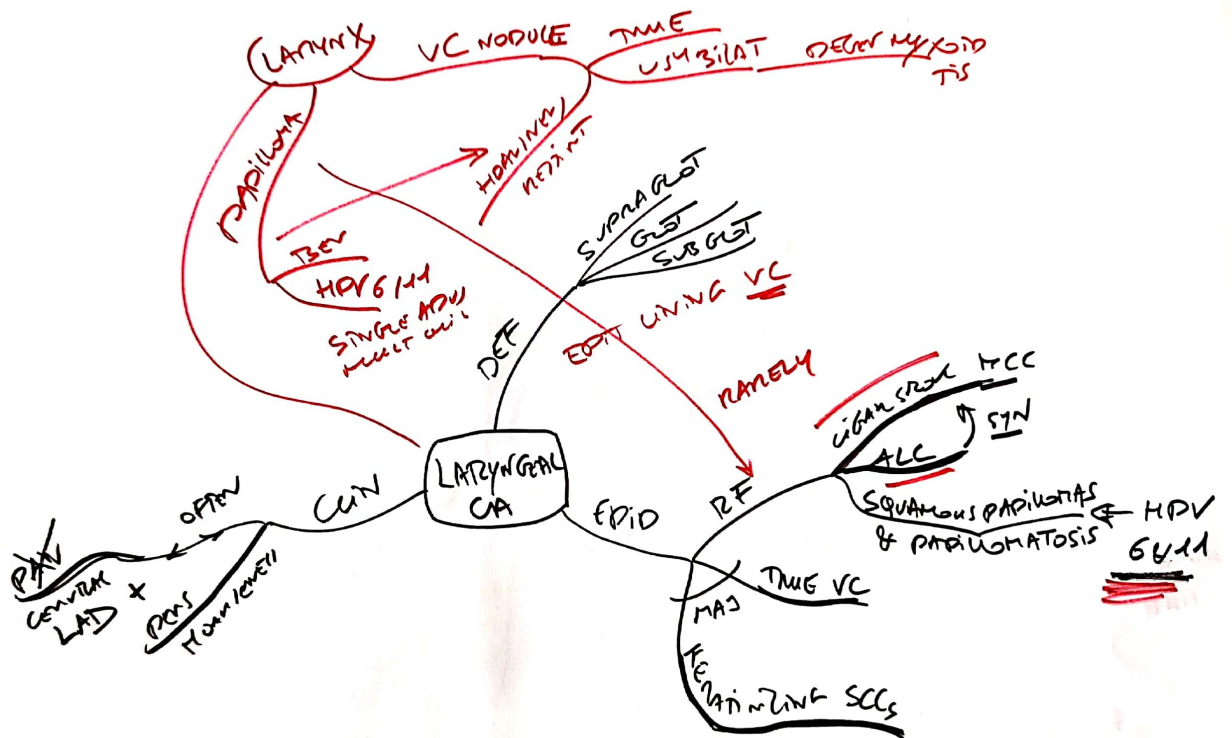 LARYNX
VC NODULE
TRUE
USY BILAT
DEGEN MYXOID
TIS
PAPILLOMA
HOARINESS
BEN
HPV 6/11
SINGLE ADUS
MULT CHIL
SUPRAGLOT
GLOT
SUBGLOT
DEF
EPIT LINING VC
RARELY
LARYNGEAL
CA
CLIN
OFTEN
PAIN
CERVICAL
LAD
+
PERS
HOARSENESS
EPID
RF
CIGAR SMOK MCC
ALC
SYN
SQUAMOUS PAPILLOMAS
& PAPILLOMATOSIS
HPV
6 & 11
MAJ
TRUE VC
KERATINIZING SCCs